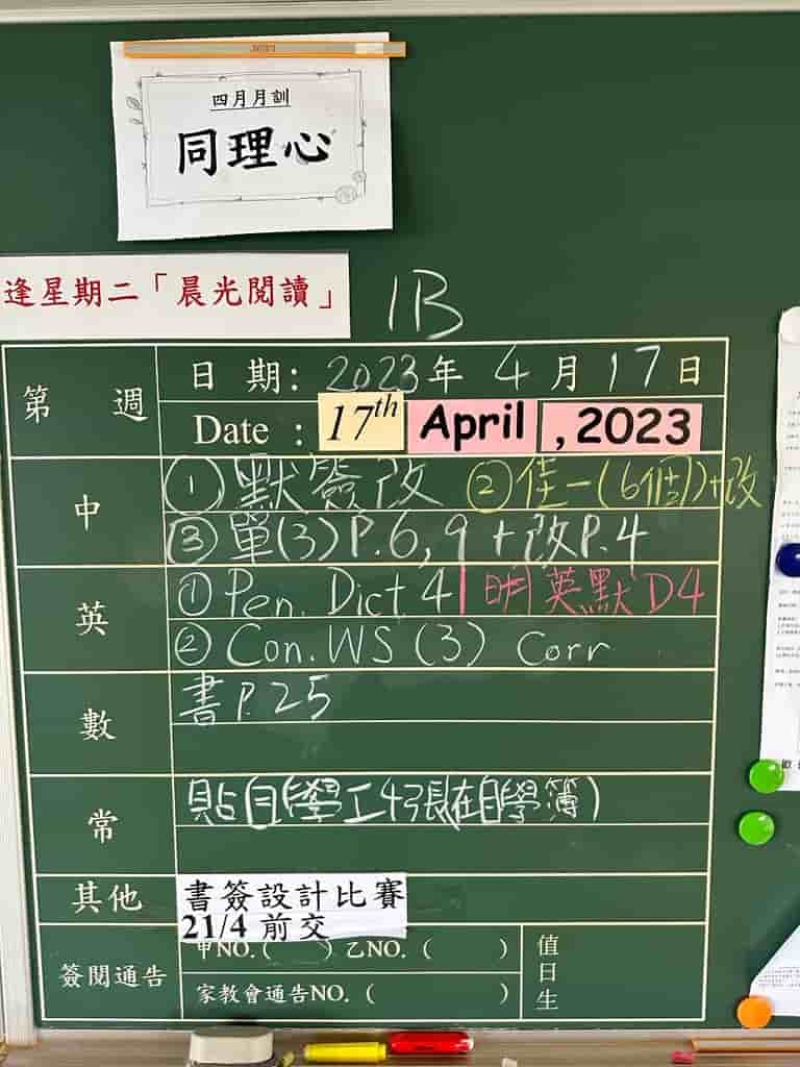 四月月訓
同理心
逢星期二「晨光閱讀」
1B
第 週
日 期: 2023年 4月 17日
Date : 17th April , 2023
中
① 默簽改 ② 佳一(6個)+改
③ 單(3)P.6, 9 +改P.4
英
① Pen. Dict 4 | 明英默 D4
② Con. WS (3) Corr
數
書P.25
常
貼自學工4張(在自學簿)
其他
書簽設計比賽
21/4 前交
簽閱通告
甲NO.( ) 乙NO. ( )
家教會通告NO. ( )
值日生